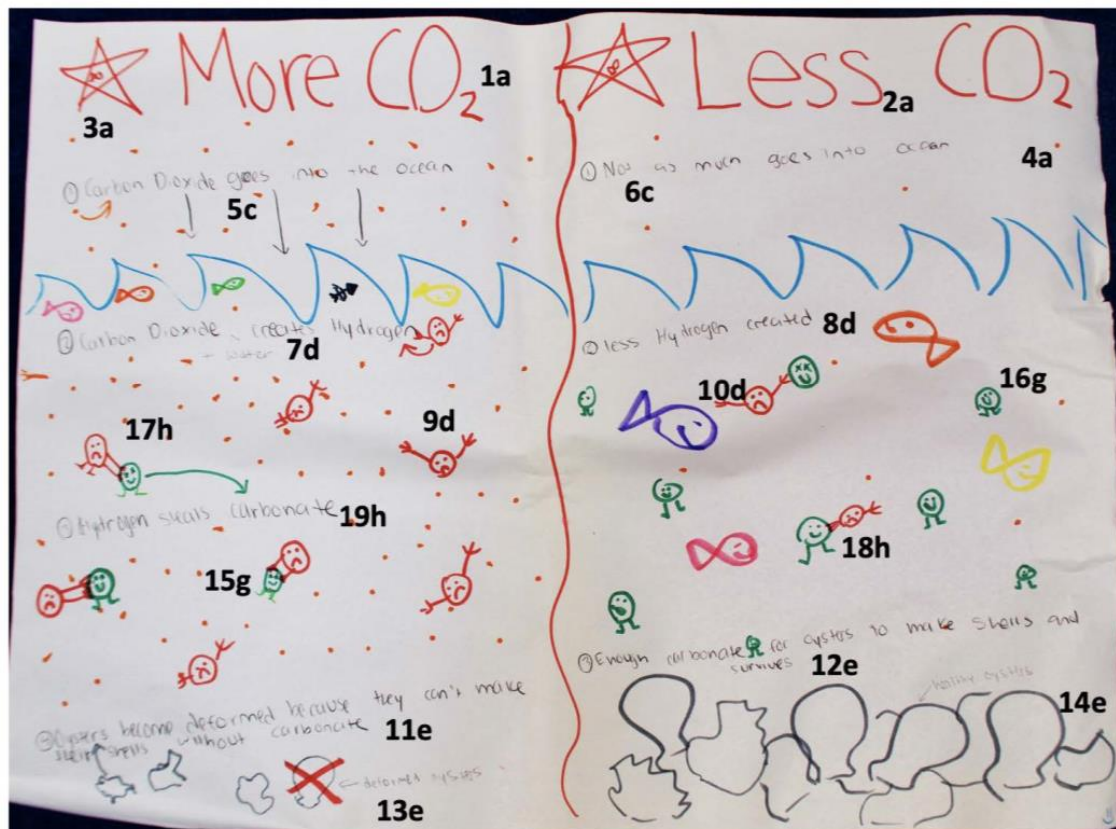 More CO2 1a
3a
① Carbon Dioxide goes into the ocean
5c
② Carbon Dioxide creates Hydrogen
+ water 7d
17h
9d
Hydrogen steals carbonate 19h
15g
Oysters become deformed because they can't make
their shells without carbonate 11e
← deformed oysters
13e
Less 2a CO2
① Not as much goes into ocean 4a
6c
② less Hydrogen created 8d
10d
16g
18h
③ Enough carbonate for oysters to make shells and
survives 12e
healthy oysters
14e